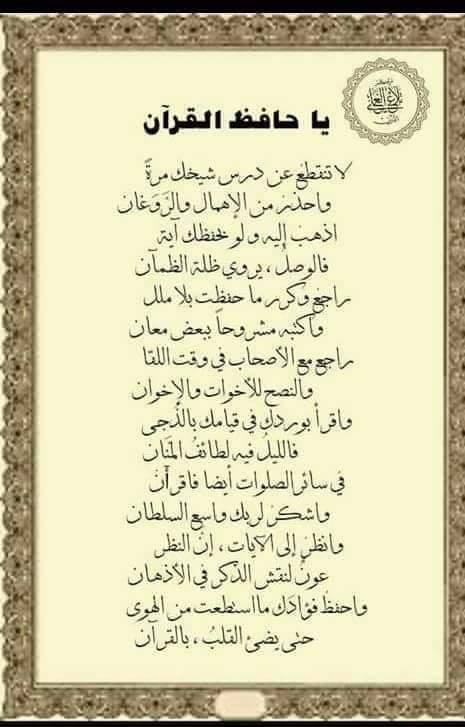 يا حافظ القرآن
لا تنقطع عن درس شيخك مرةً
واحذر من الإهمال والزَوَغان
اذهب إليه ولو بحفظك آية
فالوصلُ، يروي ظلة الظمآن
راجع وكرر ما حفظت بلا ملل
واكتبه مشروحاً ببعض معان
راجع مع الأصحاب في وقت اللقا
والنصح للأخوات والإخوان
واقرأ بوردك في قيامك بالدُجى
فالليلُ فيه لطائفُ المَنان
في سائر الصلوات أيضا فاقرأن
واشكر لربك واسع السلطان
وانظر إلى الآيات، إن النظر
عونٌ لنقش الذكر في الأذهان
واحفظ فؤادك ما اسطعت من الهوى
حتى يضئ القلبُ، بالقرآن